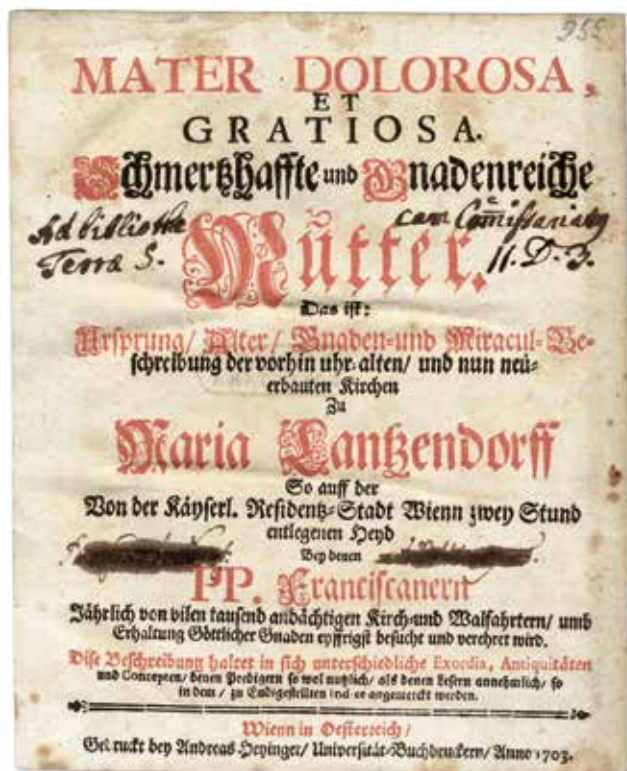 255
MATER DOLOROSA,
ET
GRATIOSA.
Schmertzhaffte und Gnadenreiche
Ad bibliothecam Com̃issariatus
Terræ S. II. D. 3.
Mütter.
Das ist:
Ursprung/ Alter/ Gnaden-und Miracul-Be-
schreibung der vorhin uhr-alten/ und nun neü-
erbauten Kirchen
Zu
Maria Lantzendorff
So auff der
Von der Käyserl. Residentz-Stadt Wienn zwey Stund
entlegenen Heyd
Bey denen
PP. Franciscanern
Jährlich von vilen tausend andächtigen Kirch-und Walfahrtern/ umb
Erhaltung Göttlicher Gnaden eyffrigst besucht und verehret wird.
Dise Beschreibung haltet in sich unterschiedliche Exordia, Antiquitäten
und Concepten/ denen Predigern so wol nutzlich/ als denen Lesern annehmlich/ so
in dem/ zu Endigestellten angemerckt werden.
Wienn in Oesterreich/
Gedruckt bey Andreas Heyinger/ Universität-Buchdruckern/ Anno 1703.